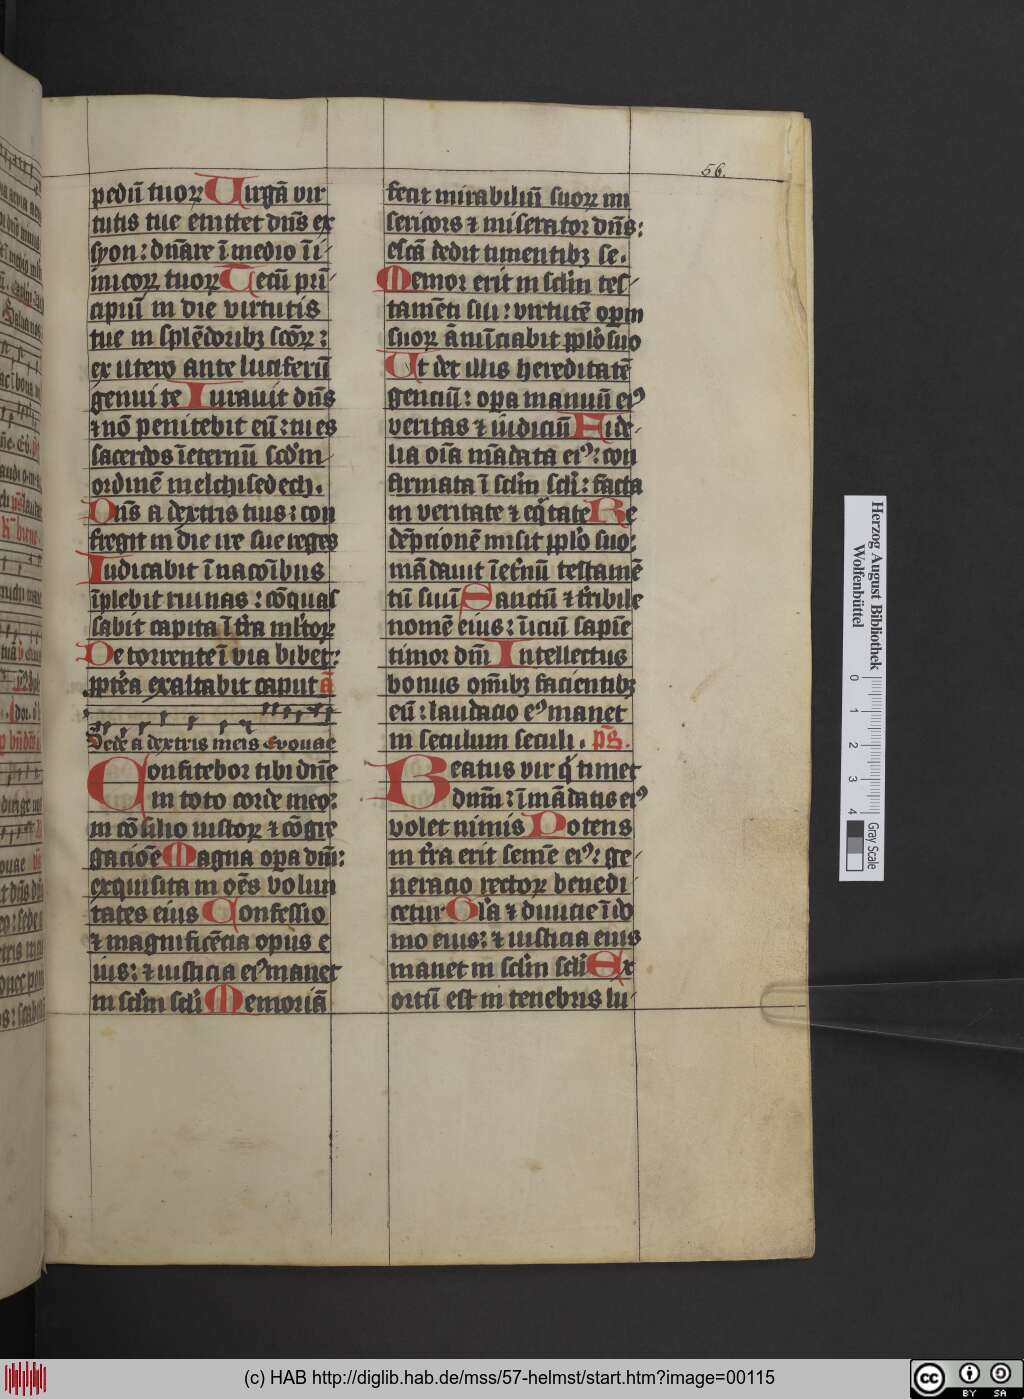 56.
pedū tuoꝝ Uirgā vir
tutis tue emittet dn̄s ex
syon: dn̄are ī medio īi
micoꝝ tuoꝝ Tecū pri
cipiū in die virtutis
tue in splēdoribꝫ scōꝝ:
ex utero ante luciferū
genui te Iurauit dn̄s
⁊ nō penitebit eū: tu es
sacerdos ī eternū scd'm
ordinē melchisedech.
Dn̄s a dextris tuis: con
fregit in die ire sue reges
Iudicabit ī nacōibus
īplebit ruinas: cōquas
sabit capita ī tr̄a ml'toꝝ
De torrente ī via bibet:
ꝓpt'ea exaltabit caput ā
Sede a dextris meis Evouae
Confitebor tibi dn̄e
in toto corde meo:
in cōsilio iustoꝝ ⁊ cōgre
gaciōe Magna oꝑa dn̄i:
exquisita in oēs volun
tates eius Confessio
⁊ magnificēcia opus e
ius: ⁊ iusticia eiꝰ manet
in scl'm scl'i Memoriā
fecit mirabiliū suoꝝ mi
sericors ⁊ miserator dn̄s:
escā dedit timentibꝫ se.
Memor erit in scl'm tes
tamēti sui: virtutē oꝑm
suoꝝ ānūciabit ppl'o suo
Ut det illis hereditatē
genciū: oꝑa manuū eiꝰ
veritas ⁊ iudiciū Fide
lia oīa mādata eiꝰ: con
firmata ī scl'm scl'i: facta
in veritate ⁊ eq̄tate Re
dēpcionē misit ppl'o suo:
mādauit ī et'nū testamē
tū suū Sanctū ⁊ t'ribile
nomē eius: īiciū sapīe
timor dn̄i Intellectus
bonus om̄ibꝫ facientibꝫ
eū: laudacio eꝰ manet
in seculum seculi. p̄s.
Beatus vir q' timet
dn̄m: ī mādatis eiꝰ
volet nimis Potens
in tr̄a erit semē eiꝰ: ge
neracio rectoꝝ benedi
cetur Gl'a ⁊ diuicie ī do
mo eius: ⁊ iusticia eius
manet in scl'm scl'i Ex
ortū est in tenebris lu
Herzog August Bibliothek
Wolfenbüttel
0 1 2 3 4
Gray Scale
(c) HAB http://diglib.hab.de/mss/57-helmst/start.htm?image=00115
cc BY SA